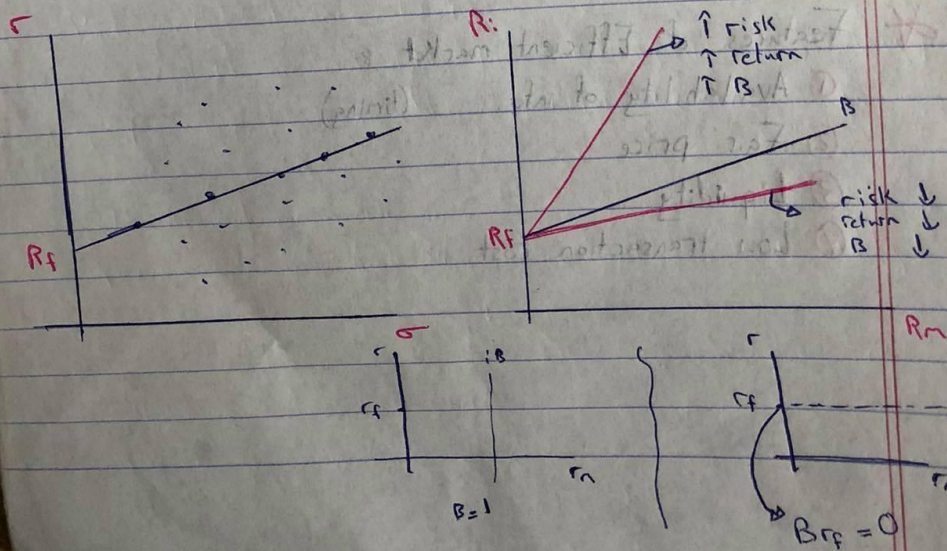 r
Rf
σ
Ri
↑ risk
↑ return
↑ B
B
Rf
risk ↓
return ↓
B ↓
Rm
r
rf
B
rm
B = 1
r
rf
Brf = 0